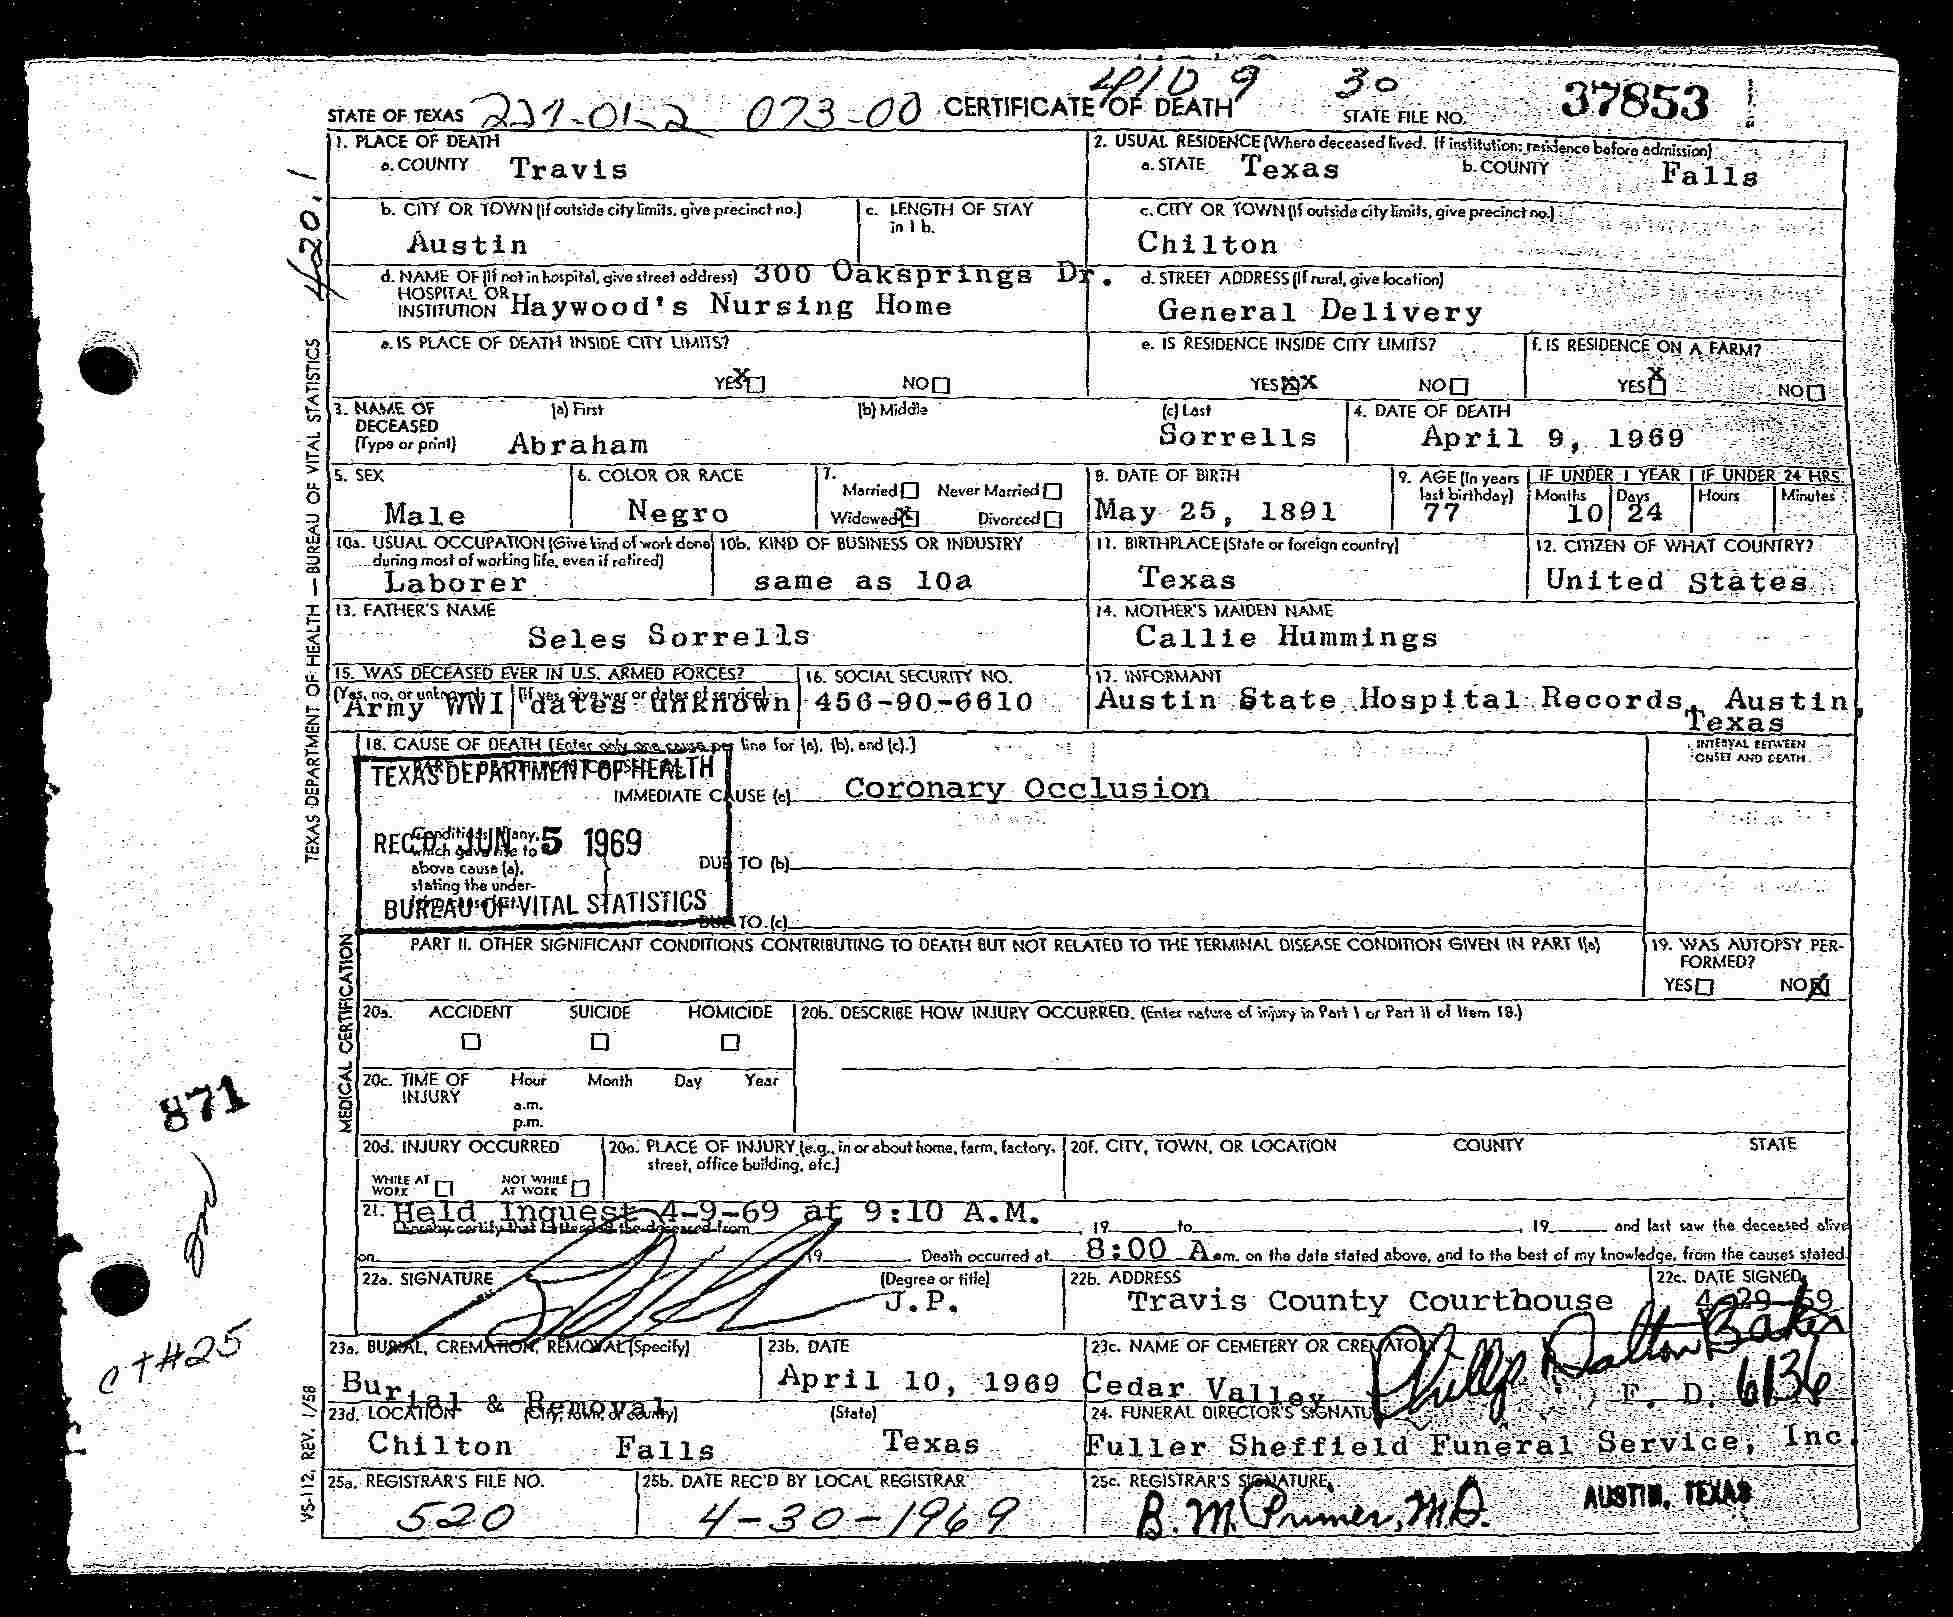 41D 9 30
STATE OF TEXAS 227-01-2 073-00 CERTIFICATE OF DEATH STATE FILE NO. 37853
1. PLACE OF DEATH
a. COUNTY Travis
2. USUAL RESIDENCE (Where deceased lived. If institution: residence before admission)
a. STATE Texas b. COUNTY Falls
b. CITY OR TOWN (If outside city limits, give precinct no.) Austin
c. LENGTH OF STAY in 1 b.
c. CITY OR TOWN (If outside city limits, give precinct no.) Chilton
d. NAME OF (If not in hospital, give street address) 300 Oaksprings Dr.
HOSPITAL OR INSTITUTION Haywood's Nursing Home
d. STREET ADDRESS (If rural, give location)
General Delivery
e. IS PLACE OF DEATH INSIDE CITY LIMITS?
YES X NO
e. IS RESIDENCE INSIDE CITY LIMITS?
YES XX NO
f. IS RESIDENCE ON A FARM?
YES X NO
3. NAME OF DECEASED (Type or print)
(a) First Abraham
(b) Middle
(c) Last Sorrells
4. DATE OF DEATH
April 9, 1969
5. SEX
Male
6. COLOR OR RACE
Negro
7. Married Never Married
Widowed X Divorced
8. DATE OF BIRTH
May 25, 1891
9. AGE (In years last birthday)
77
IF UNDER 1 YEAR
Months 10 Days 24
IF UNDER 24 HRS.
Hours Minutes
10a. USUAL OCCUPATION (Give kind of work done during most of working life, even if retired)
Laborer
10b. KIND OF BUSINESS OR INDUSTRY
same as 10a
11. BIRTHPLACE (State or foreign country)
Texas
12. CITIZEN OF WHAT COUNTRY?
United States
13. FATHER'S NAME
Seles Sorrells
14. MOTHER'S MAIDEN NAME
Callie Hummings
15. WAS DECEASED EVER IN U.S. ARMED FORCES?
(Yes, no, or unknown) (If yes, give war or dates of service)
Army WWI dates unknown
16. SOCIAL SECURITY NO.
456-90-6610
17. INFORMANT
Austin State Hospital Records, Austin, Texas
18. CAUSE OF DEATH (Enter only one cause per line for (a), (b), and (c).)
INTERVAL BETWEEN ONSET AND DEATH
TEXAS DEPARTMENT OF HEALTH
REC'D JUN 5 1969
BUREAU OF VITAL STATISTICS
IMMEDIATE CAUSE (a) Coronary Occlusion
Conditions, if any, which gave rise to above cause (a), stating the under-
DUE TO (b)
DUE TO (c)
PART II. OTHER SIGNIFICANT CONDITIONS CONTRIBUTING TO DEATH BUT NOT RELATED TO THE TERMINAL DISEASE CONDITION GIVEN IN PART I(a)
19. WAS AUTOPSY PERFORMED?
YES NO X
20a. ACCIDENT SUICIDE HOMICIDE
20b. DESCRIBE HOW INJURY OCCURRED. (Enter nature of injury in Part I or Part II of Item 18.)
20c. TIME OF INJURY Hour Month Day Year
a.m.
p.m.
20d. INJURY OCCURRED
WHILE AT WORK NOT WHILE AT WORK
20e. PLACE OF INJURY (e.g., in or about home, farm, factory, street, office building, etc.)
20f. CITY, TOWN, OR LOCATION COUNTY STATE
21. Held Inquest 4-9-69 at 9:10 A.M.
I hereby certify that I attended the deceased from 19 to 19 and last saw the deceased alive
on 19 Death occurred at 8:00 A.m. on the date stated above, and to the best of my knowledge, from the causes stated.
22a. SIGNATURE
(Degree or title)
J.P.
22b. ADDRESS
Travis County Courthouse
22c. DATE SIGNED
4-29-69
23a. BURIAL, CREMATION, REMOVAL (Specify)
Burial & Removal
23b. DATE
April 10, 1969
23c. NAME OF CEMETERY OR CREMATORY
Cedar Valley
Phillip Dalton Baker
F. D. 6136
23d. LOCATION (City, town, or county) (State)
Chilton Falls Texas
24. FUNERAL DIRECTOR'S SIGNATURE
Fuller Sheffield Funeral Service, Inc.
25a. REGISTRAR'S FILE NO.
520
25b. DATE REC'D BY LOCAL REGISTRAR
4-30-1969
25c. REGISTRAR'S SIGNATURE
B. M. Primer, M.D.
AUSTIN, TEXAS
TEXAS DEPARTMENT OF HEALTH — BUREAU OF VITAL STATISTICS
MEDICAL CERTIFICATION
VS-112, REV. 1/58
420.1
871
ct#25